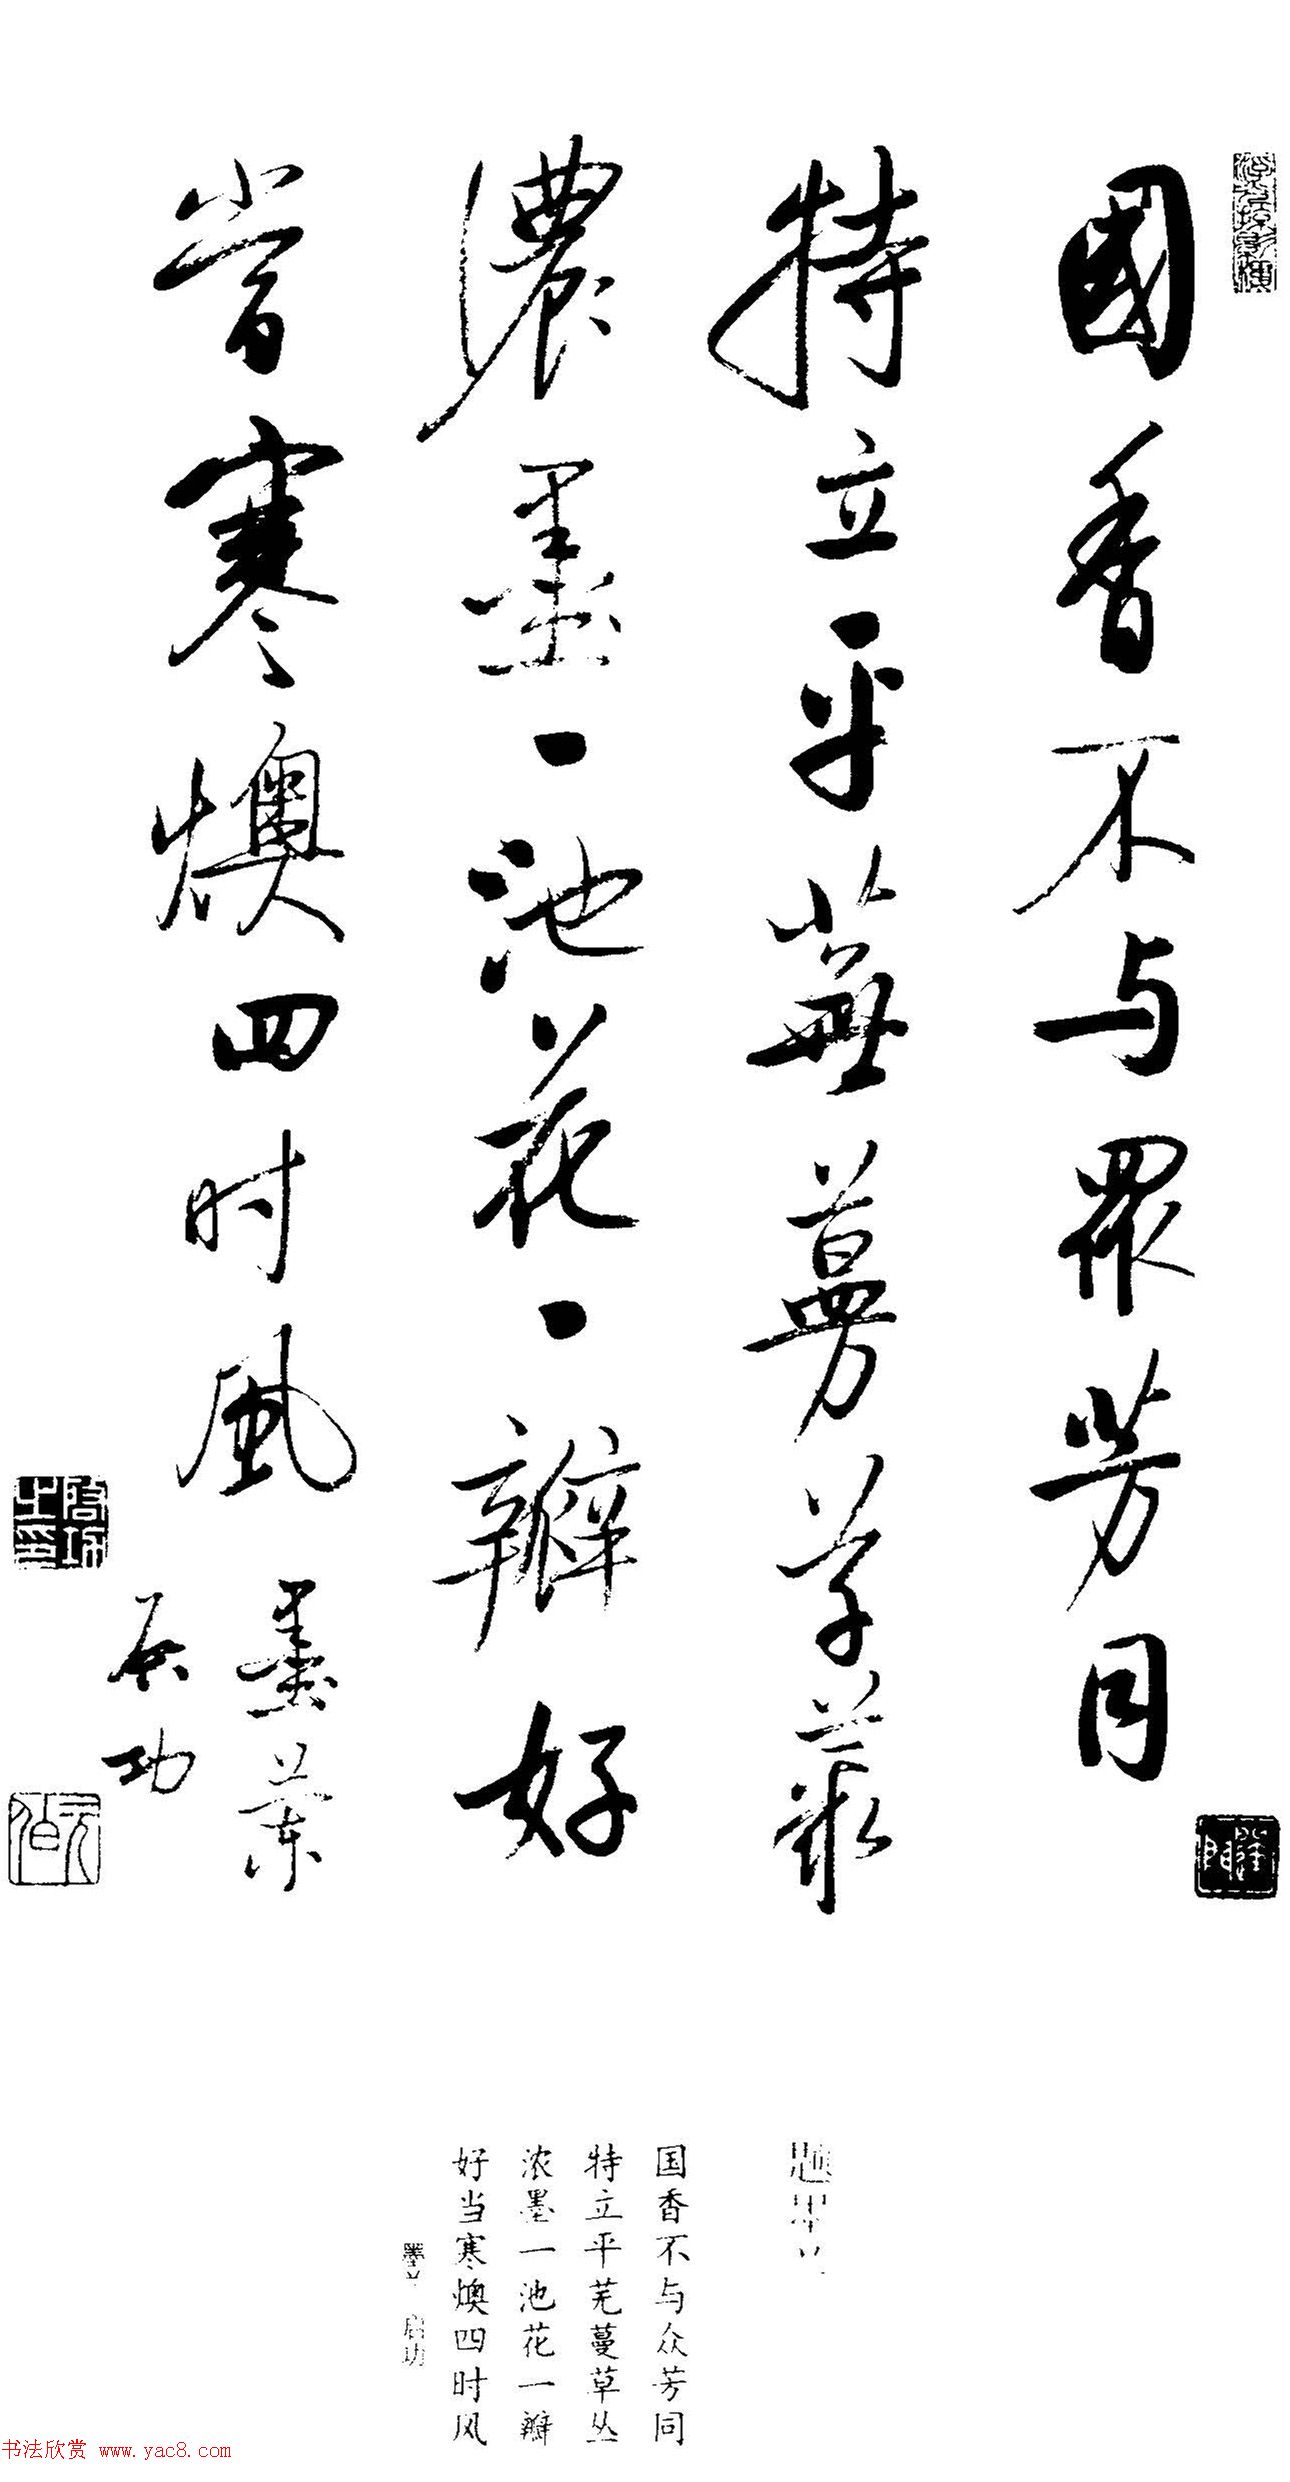 國香不与眾芳同
特立平蕪蔓草叢
濃墨一池花一瓣好
當寒燠四时風
墨蘭
启功
啟功之印
元白
题墨兰
国香不与众芳同
特立平芜蔓草丛
浓墨一池花一瓣
好当寒燠四时风
墨兰 启功
书法欣赏 www.yac8.com